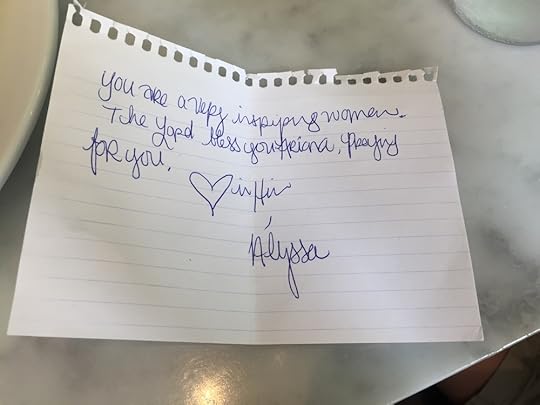 you are a very inspiring women.
The Lord bless you Ariana, Praying
for you.
♡ in Him
,
Alyssa